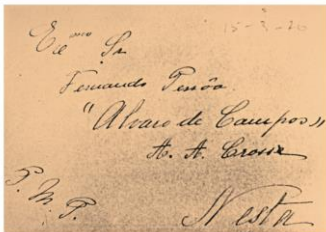 15-3-20
Exᵐᵒ Sr
Fernando Pessôa
"Alvaro de Campos"
A. A. Crosse
P. M. P.
Nesta